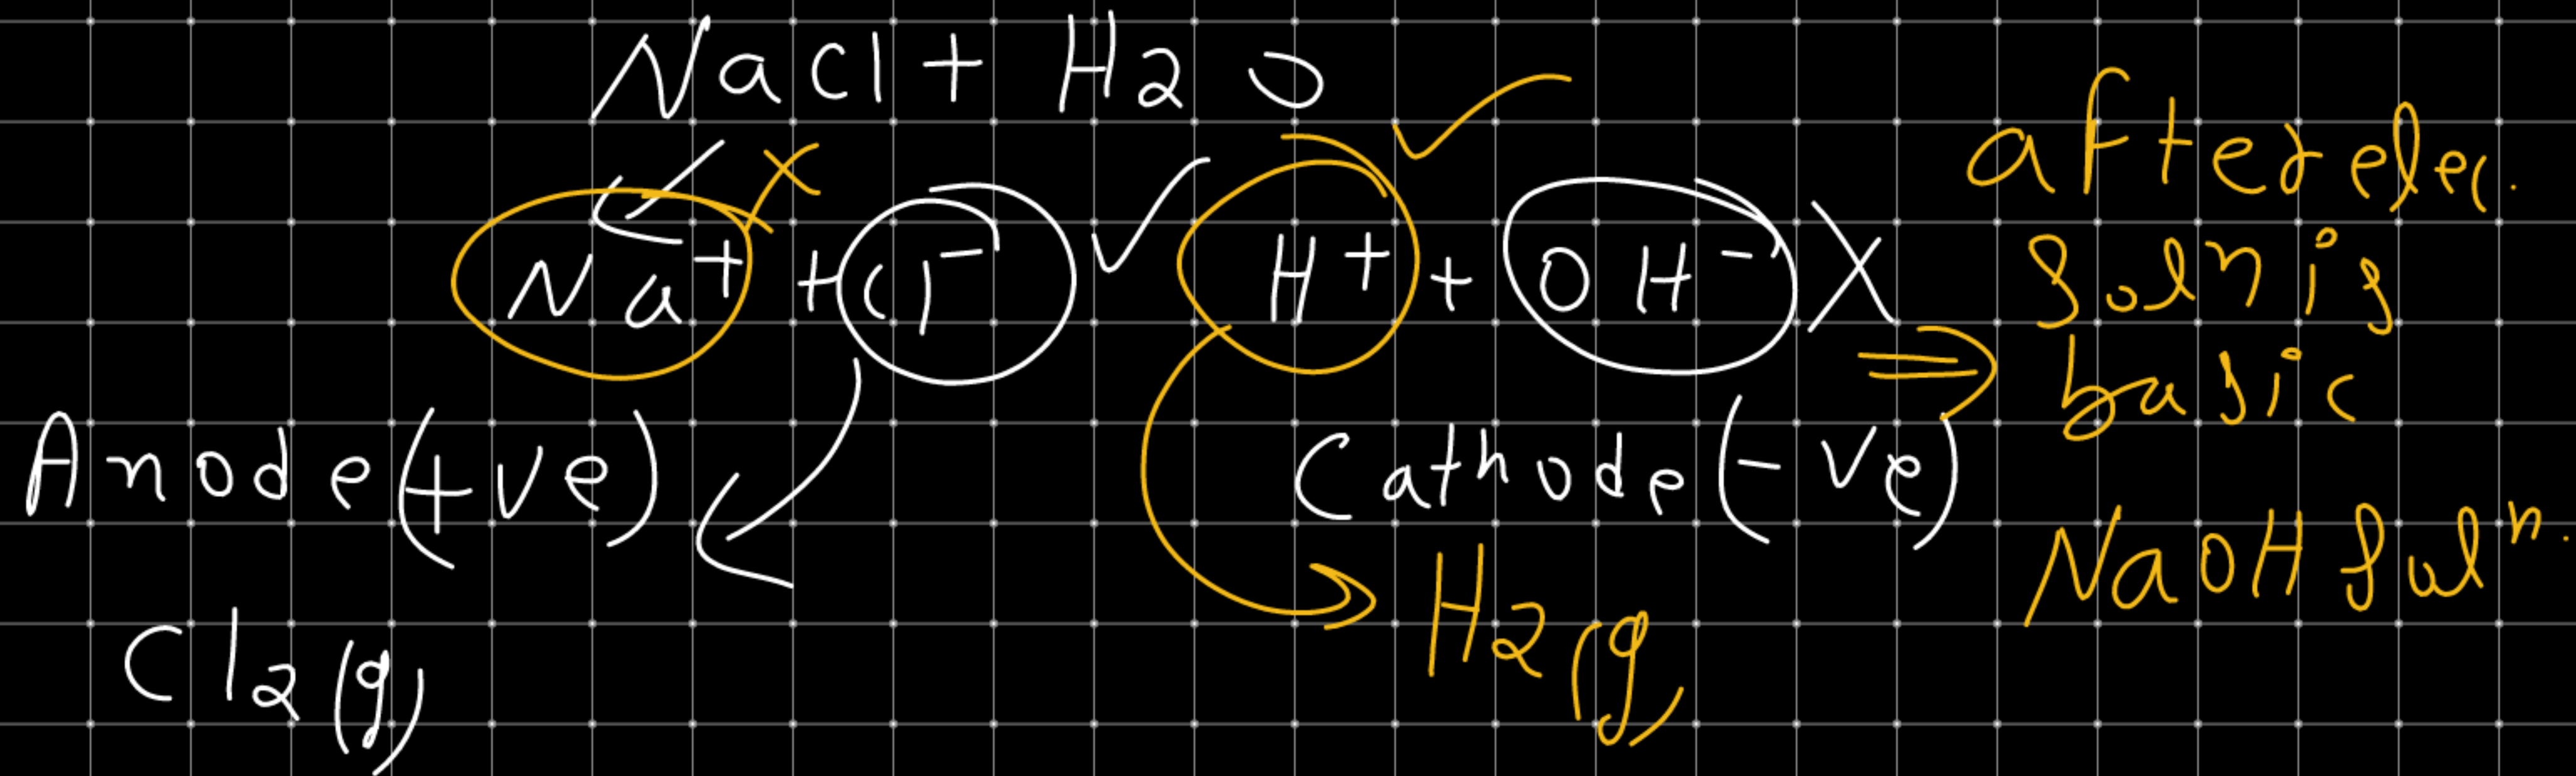 NaCl + H2O
Na+ + Cl- H+ + OH-
Anode (+ve) Cathode (-ve)
Cl2(g) H2(g)
after elec.
soln is
basic
NaOH soln.